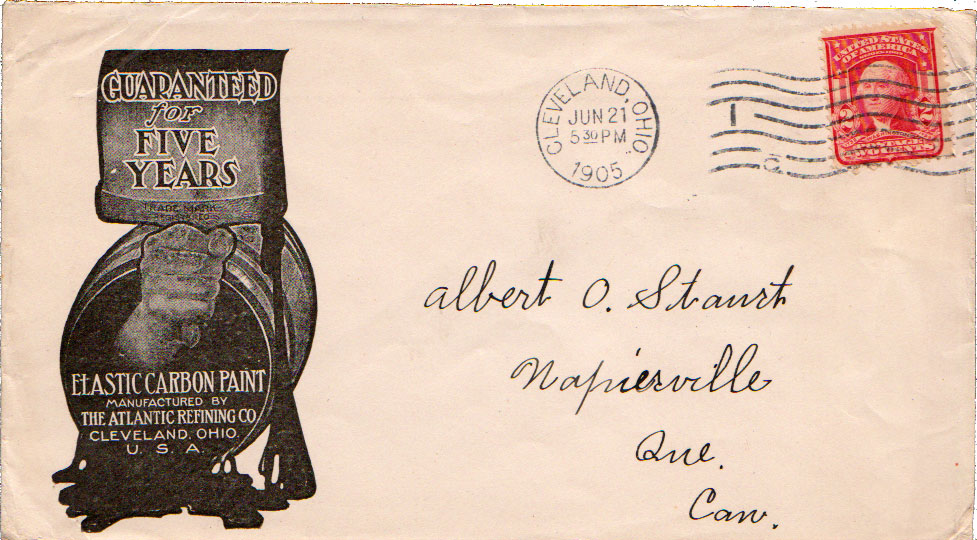 GUARANTEED
for
FIVE
YEARS
TRADE MARK
ELASTIC CARBON PAINT
MANUFACTURED BY
THE ATLANTIC REFINING CO
CLEVELAND, OHIO.
U. S. A.
CLEVELAND, OHIO.
JUN 21
5 30 PM
1905
1
C
UNITED STATES
OF AMERICA
2 2
TWO CENTS
Albert O. Staurt
Napierville
Que.
Can.